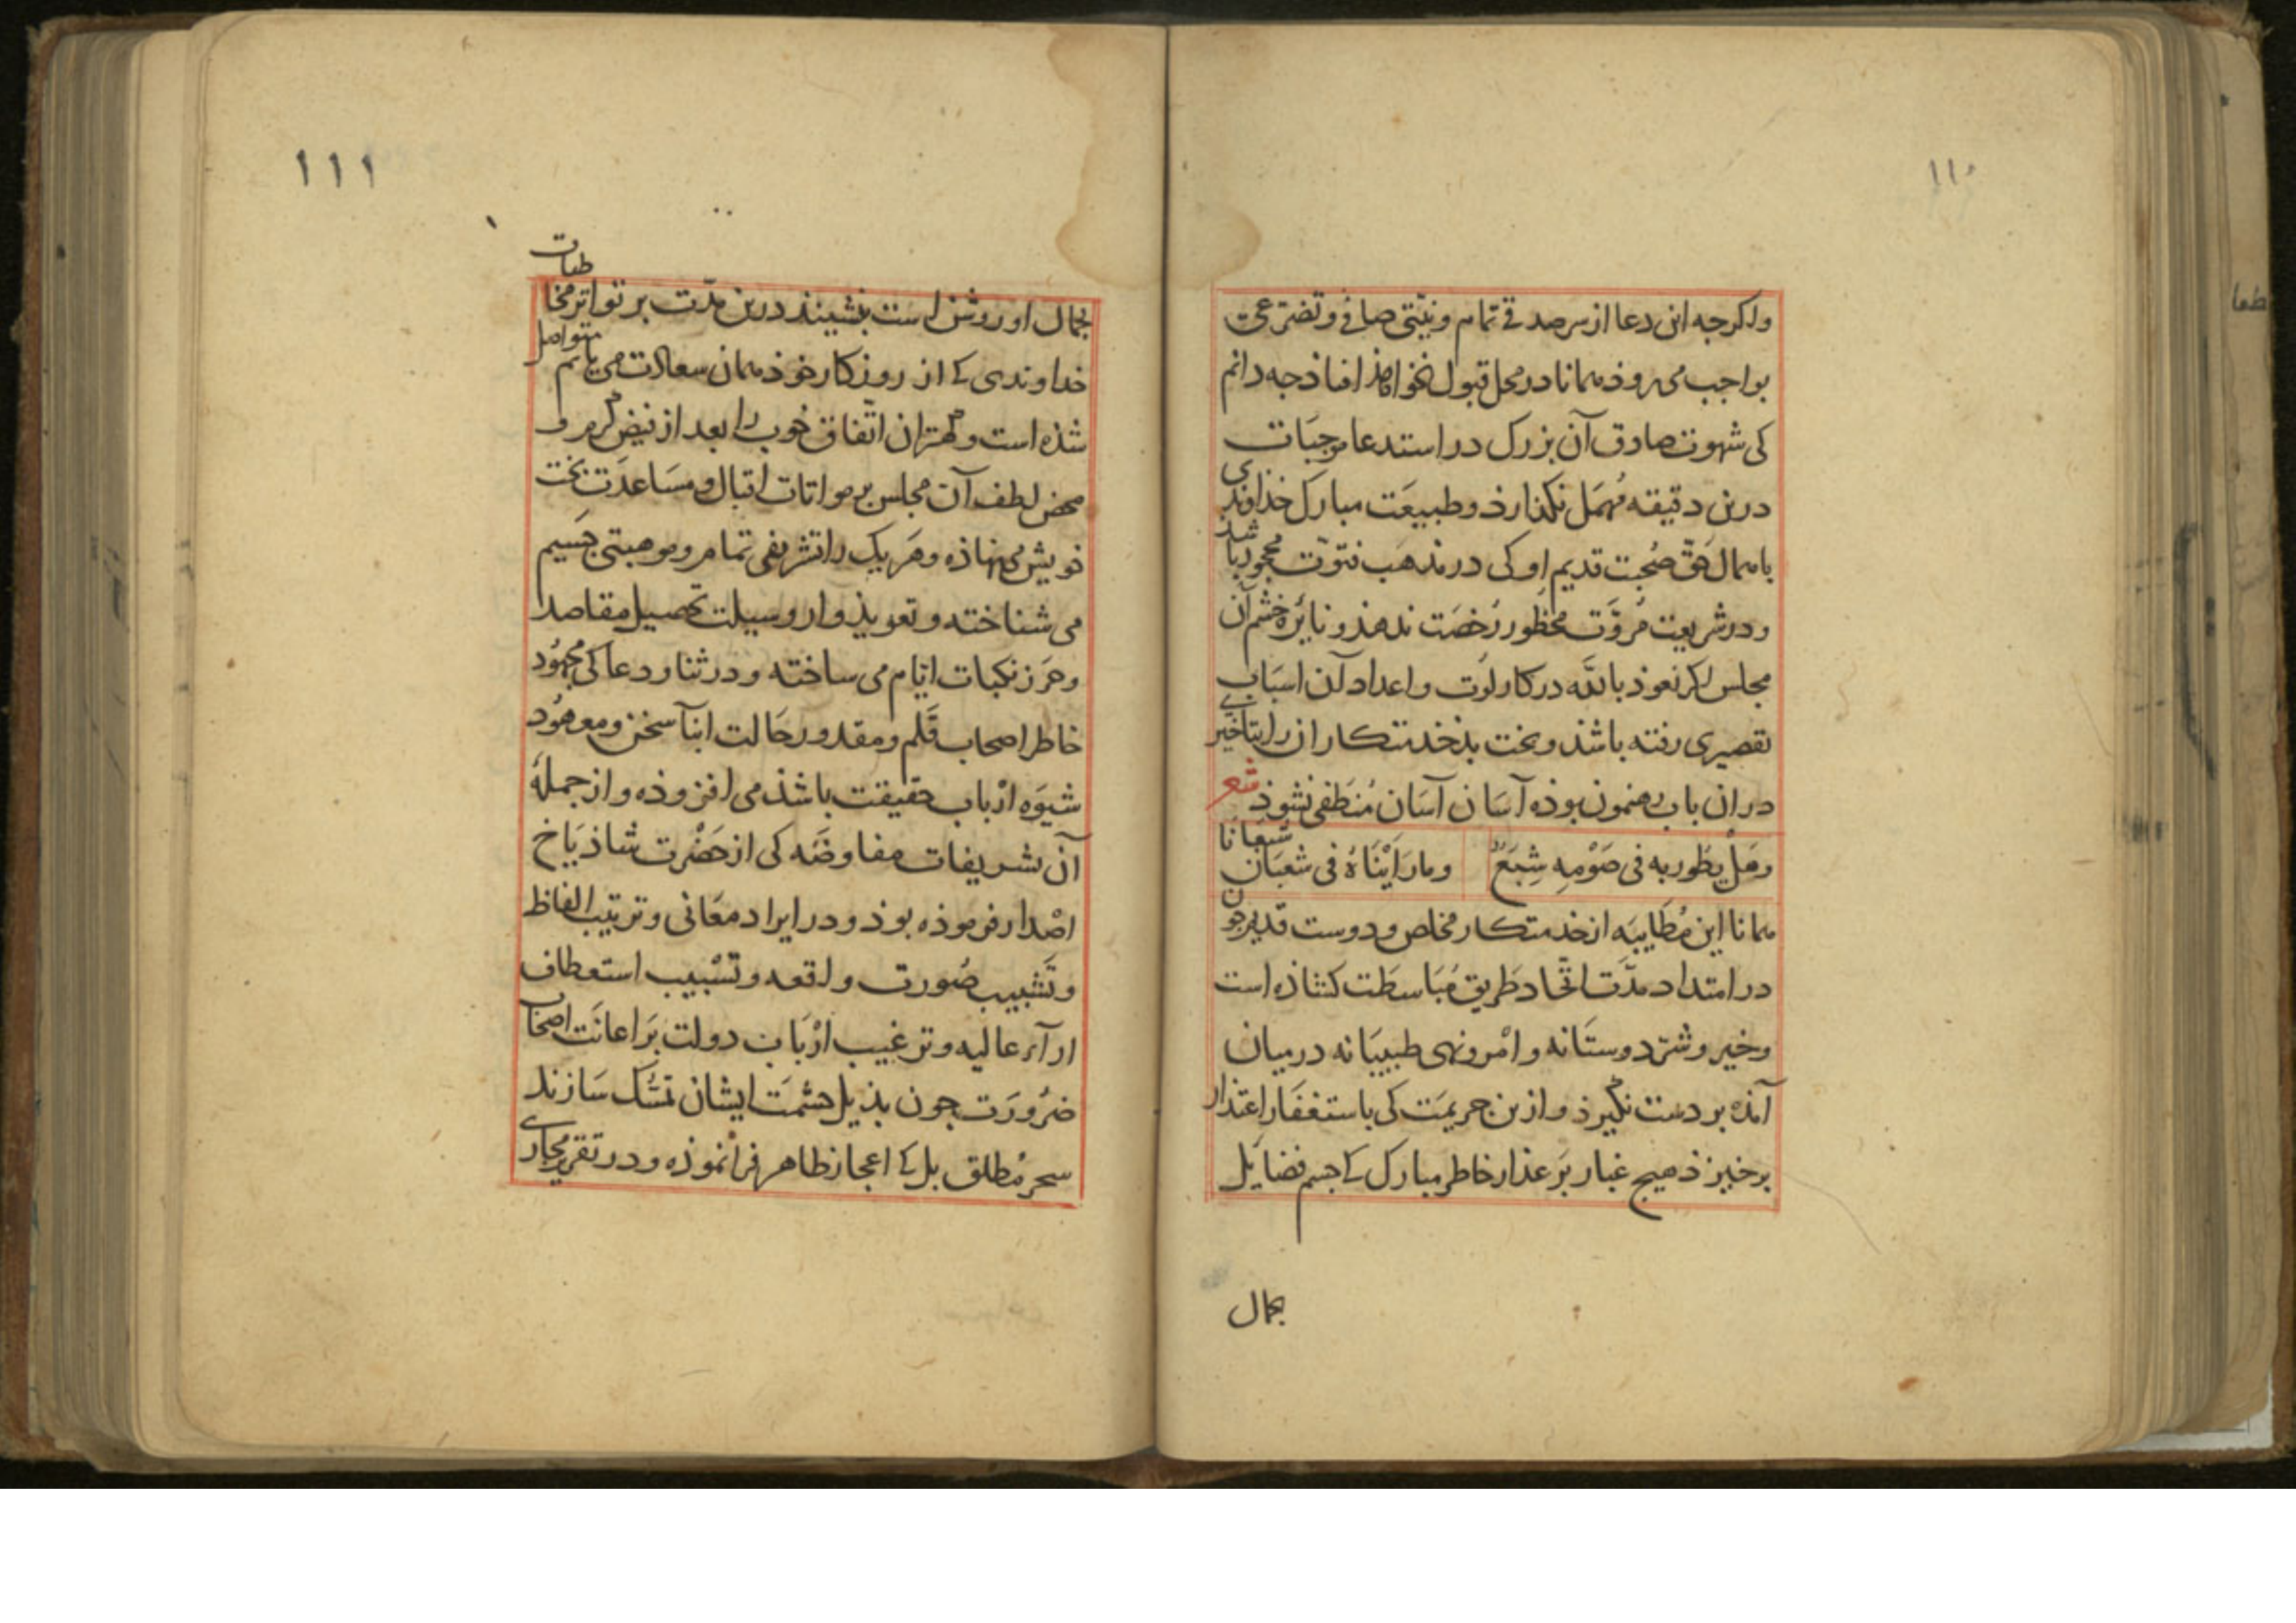 ١١٠
واکرجه این دعا از سر صدقی تمام و نیتی صافی و تضرعی
بواجب می روذ همانا در محل قبول نخواهذ افتاذ جه دانم
کی شهوت صادق آن بزرک در استدعا موجبات
درین دقیقه مهمل نکذارذ و طبیعت مبارک خداوندی
باهمال حق صحبت قدیم او کی در مذهب فتوت محجور باشد
و در شریعت مروت محظور رخصت ندهذ و نایره خشم آن
مجلس اکر نعوذ بالله در کار لوت و اعداد آن اسباب
تقصیری رفته باشذ و بخت بذ خدمتکاران را بتاخیری
در ان باب رهنمون بوذه آسان آسان منطفی نشوذ شعر
وهل یطور به فی صومه شبع وما رایناه فی شعبان شبعانا
همانا این مطایبه از خدمتکار مخلص و دوست قدیم جون
در امتداد مدت اتحاد طریق مباسطت کشاذه است
و خیر و شر دوستانه و امر و نهی طبیبانه در میان
آمذه بر دست نکیرذ و ازین جریمت کی باستغفار اعتذار
برخیزذ هیج غبار بر عذار خاطر مبارک کی جسم فضایل
بجمال
١١١
بجمال او روشن است ننشینذ درین مدت بر تواتر مخاطبات
خداوندی کی از روزکار خوذ همان سعادت می یابم متواصل
شذه است و کهتر ان اتفاق خوب را بعد از فیض کرم و
محض لطف آن مجلس بر مواتات اقبال و مساعدت بخت
خویش می نهاذه و هر یک را تشریفی تمام و موهبتی جسیم
می شناخته و تعویذ وار وسیلت تحصیل مقاصد
و حرز نکبات ایام می ساخته و در ثنا و دعا کی مجهود
خاطر اصحاب قلم و مقدور حالت ابنآ سخن و معهود
شیوه ارباب حقیقت باشذ می افزوذه و از جملهٔ
آن تشریفات مفاوضه کی از حضرت شاذیاخ
اصدار فرموذه بوذ و در ایراد معانی و ترتیب الفاظ
و تشبیب صورت واقعه و تسبیب استعطاف
ارآء عالیه و ترغیب ارباب دولت بر اعانت اصحاب
ضرورت جون بذیل حشمت ایشان تمسک سازند
سحر مطلق بل کی اعجاز ظاهر فرانموذه و در تقریر مجاری